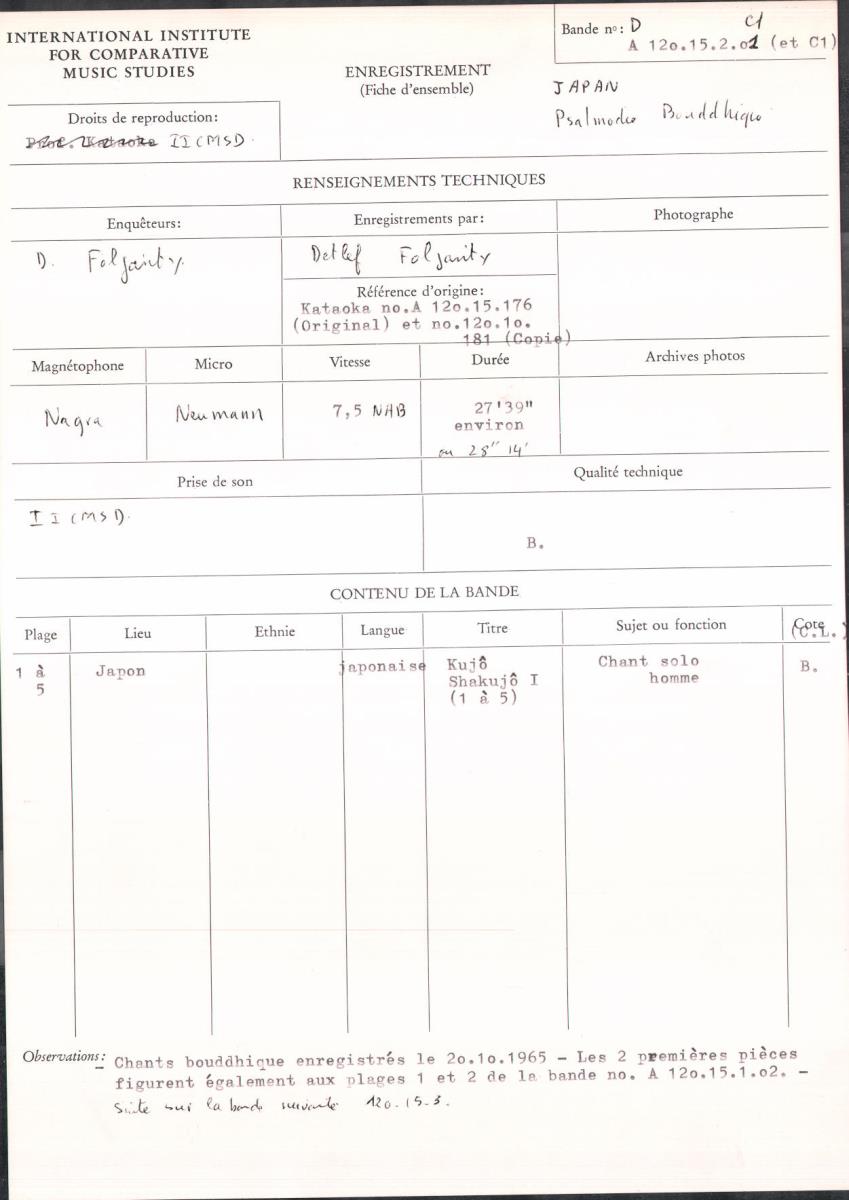 INTERNATIONAL INSTITUTE
FOR COMPARATIVE
MUSIC STUDIES
ENREGISTREMENT
(Fiche d'ensemble)
Bande no: D C1
A 12o.15.2.o1 (et C1)
JAPAN
Psalmodie Bouddhique
Droits de reproduction:
Prof. Kataoka IICMSD.
RENSEIGNEMENTS TECHNIQUES
Enquêteurs:
Enregistrements par:
Photographe
D. Foljanty.
Detlef Foljanty
Référence d'origine:
Kataoka no.A 12o.15.176
(Original) et no.12o.1o.
181 (Copie)
Magnétophone
Micro
Vitesse
Durée
Archives photos
Nagra
Neumann
7,5 NAB
27'39"
environ
ou 28" 14'
Prise de son
Qualité technique
IICMSD.
B.
CONTENU DE LA BANDE
Plage
Lieu
Ethnie
Langue
Titre
Sujet ou fonction
Cote
(C.L.)
1 à
5
Japon
japonaise
Kujô
Shakujô I
(1 à 5)
Chant solo
homme
B.
Observations: Chants bouddhique enregistrés le 2o.1o.1965 - Les 2 premières pièces
figurent également aux plages 1 et 2 de la bande no. A 12o.15.1.o2. -
Suite sur la bande suivante 120.15.3.